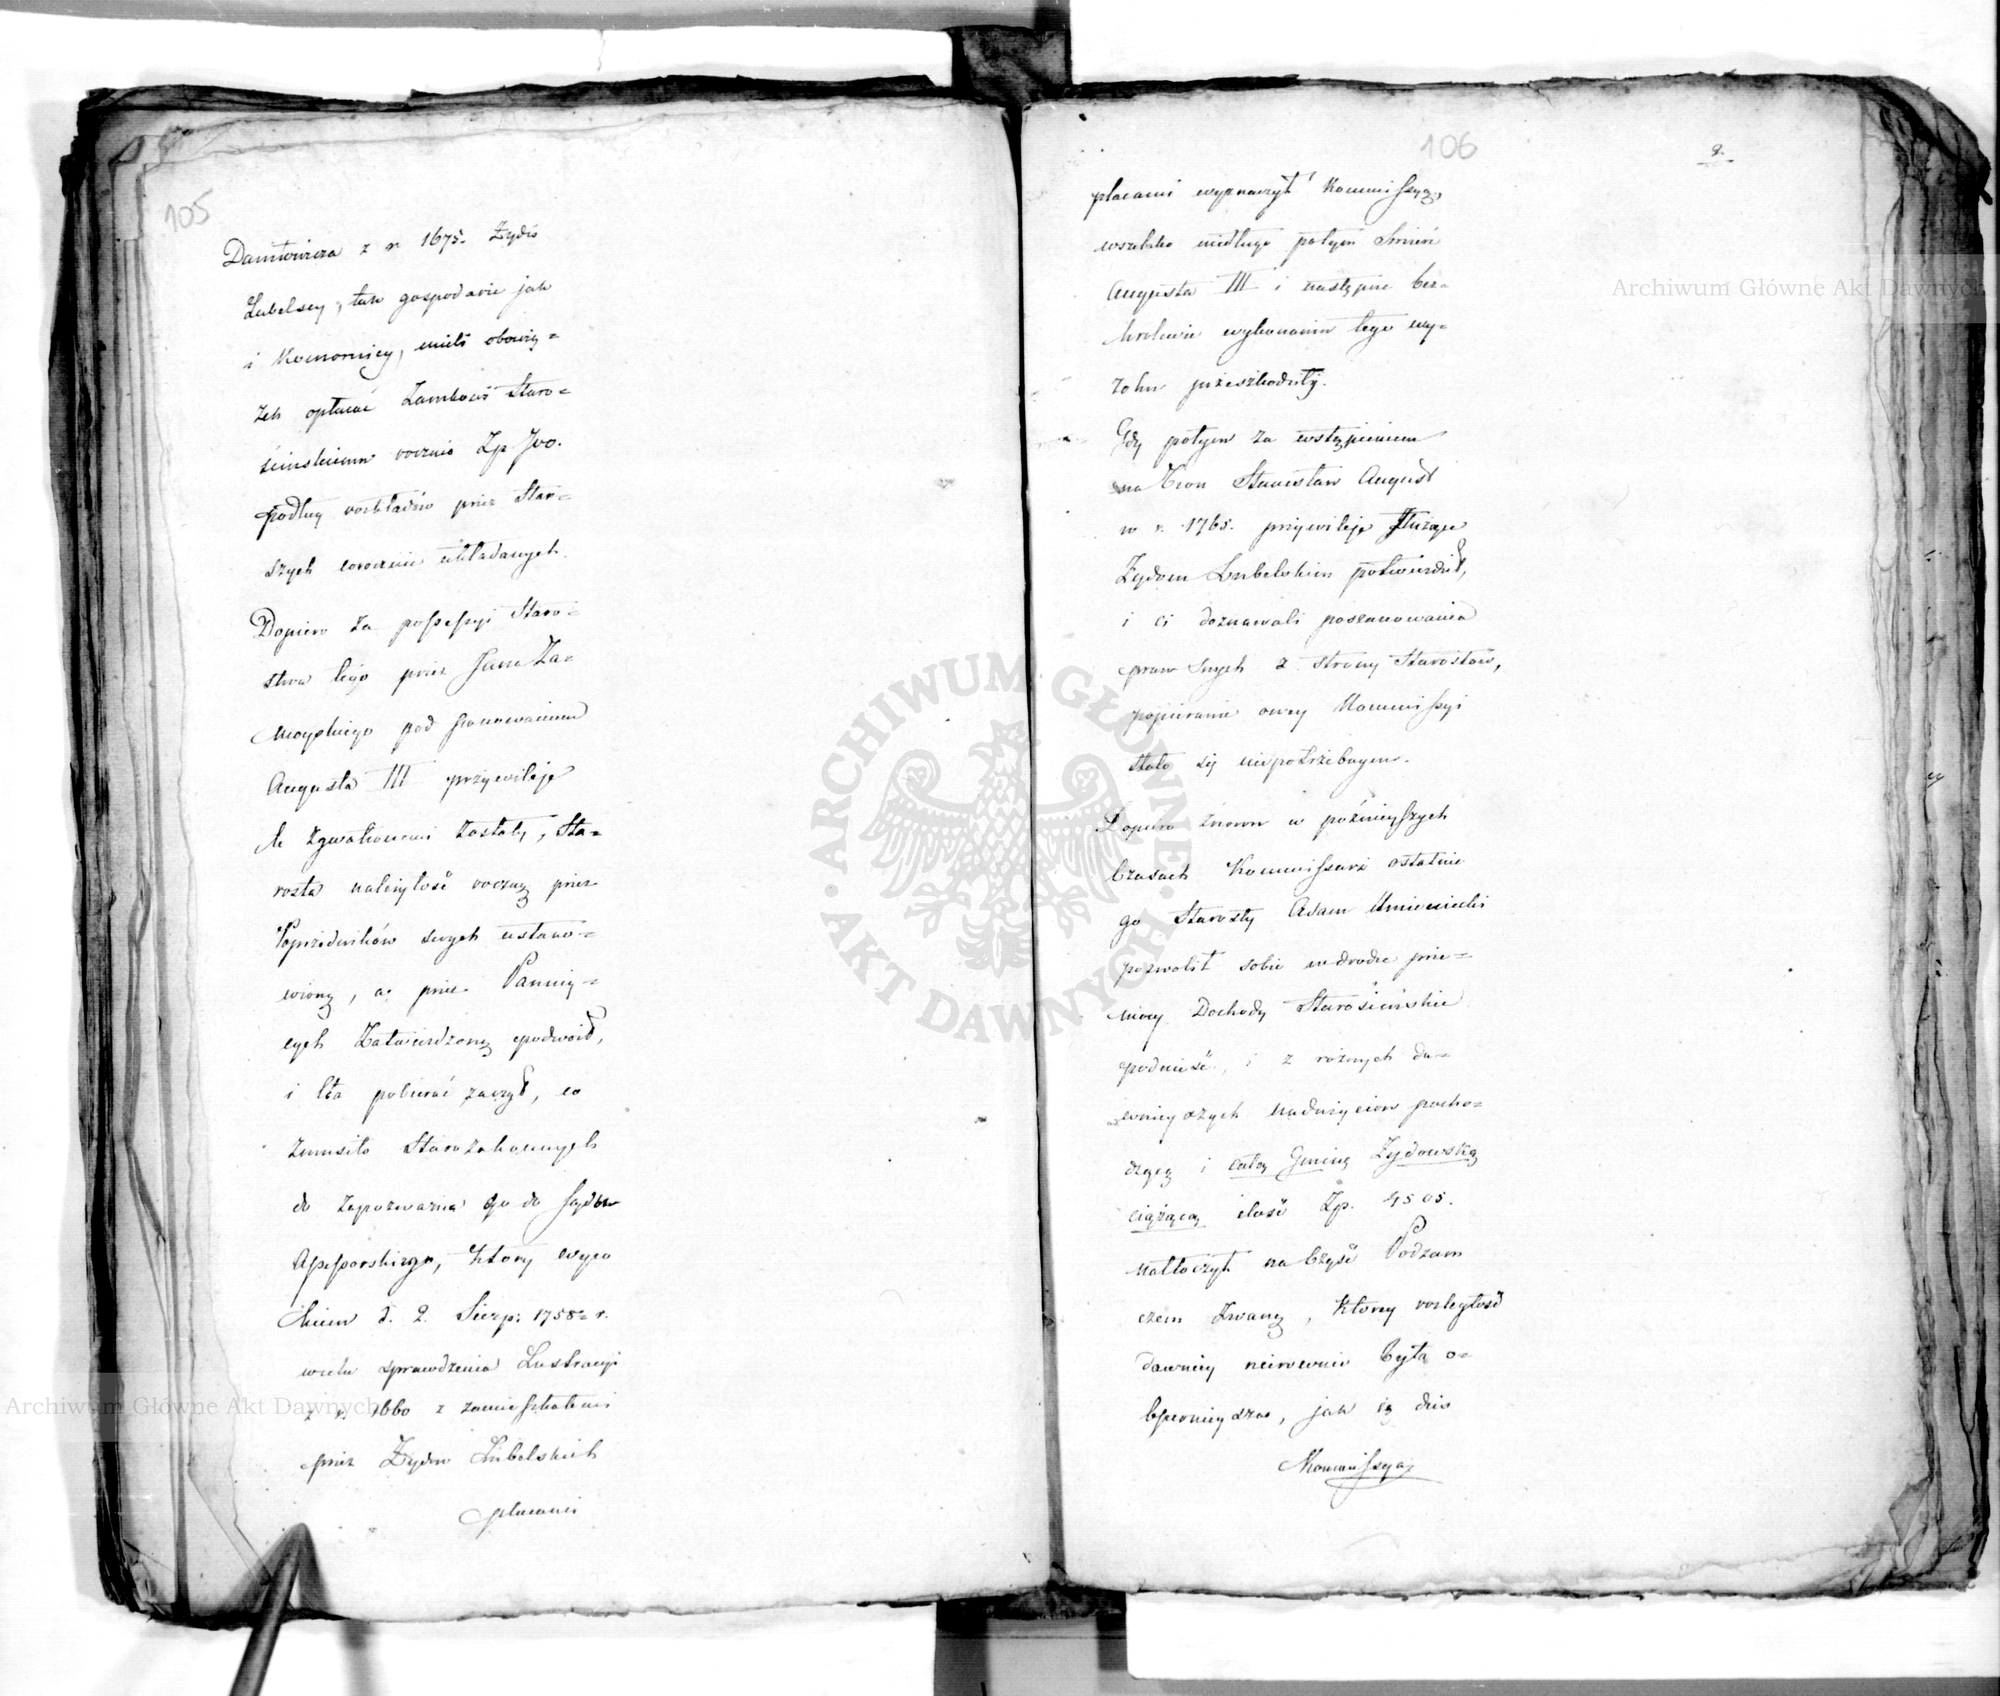 105
Daniłowicza z r. 1675. Żydzi
Lubelscy, tak gospodarze jak
i Komornicy, mieli obowią=
zek opłacać Zamkowi Staro=
ścińskiemu rocznie Zp
podług rozkładów przez Star=
szych corocznie układanych.
Dopiero za possessyi Staro=
stwa tego przez Jana Za=
moyskiego pod panowaniem
Augusta III przywileje
te zgwałconemi zostały, Sta=
rosta należytość roczną przez
Poprzedników swych ustano=
wioną, a przez Panuią=
cych Zatwierdzoną podwoił,
i tła pobierać zaczął, co
zmusiło Starozakonnych
do zapozwania go do Sądu
Assessorskiego, który wyro
kiem d. 2. Sierp: 1758 r.
wielu sprawdzenia Lustracyi
z r. 1660 z zamieszkałemi
przez Żydów Lubelskich
placami
106
2.
placami wyznaczył Kommissyą,
wszakże niedługo potym Śmierć
Augusta III i następne bez=
królewie wykonaniu tego wy=
roku przeszkodziły.
Gdy potym za wstąpieniem
na Tron Stanisław August
w r. 1765. przywileje służące
Żydom Lubelskim potwierdził,
i ci doznawali poszanowania
praw swych z strony Starostów,
popieranie owey Kommissyi
stało się niepotrzebnym.
Dopiero znowu w poźnieyszych
Czasach Kommissarz ostatnie
go Starosty Adam Umieniecki
pozwolił sobie w drodze prze=
mocy Dochody Starościńskie
podnieść, i z rożnych da=
wnieyszych nadużyciow pocho=
dzącą i całą Gminę Żydowską
ciążącą ilość Zp. 4505.
natłoczył na Część Podzam
czem Zwaną, którey rozległość
dawniey nierównie była o=
bszernieysza, jak ią dziś
Kommissya